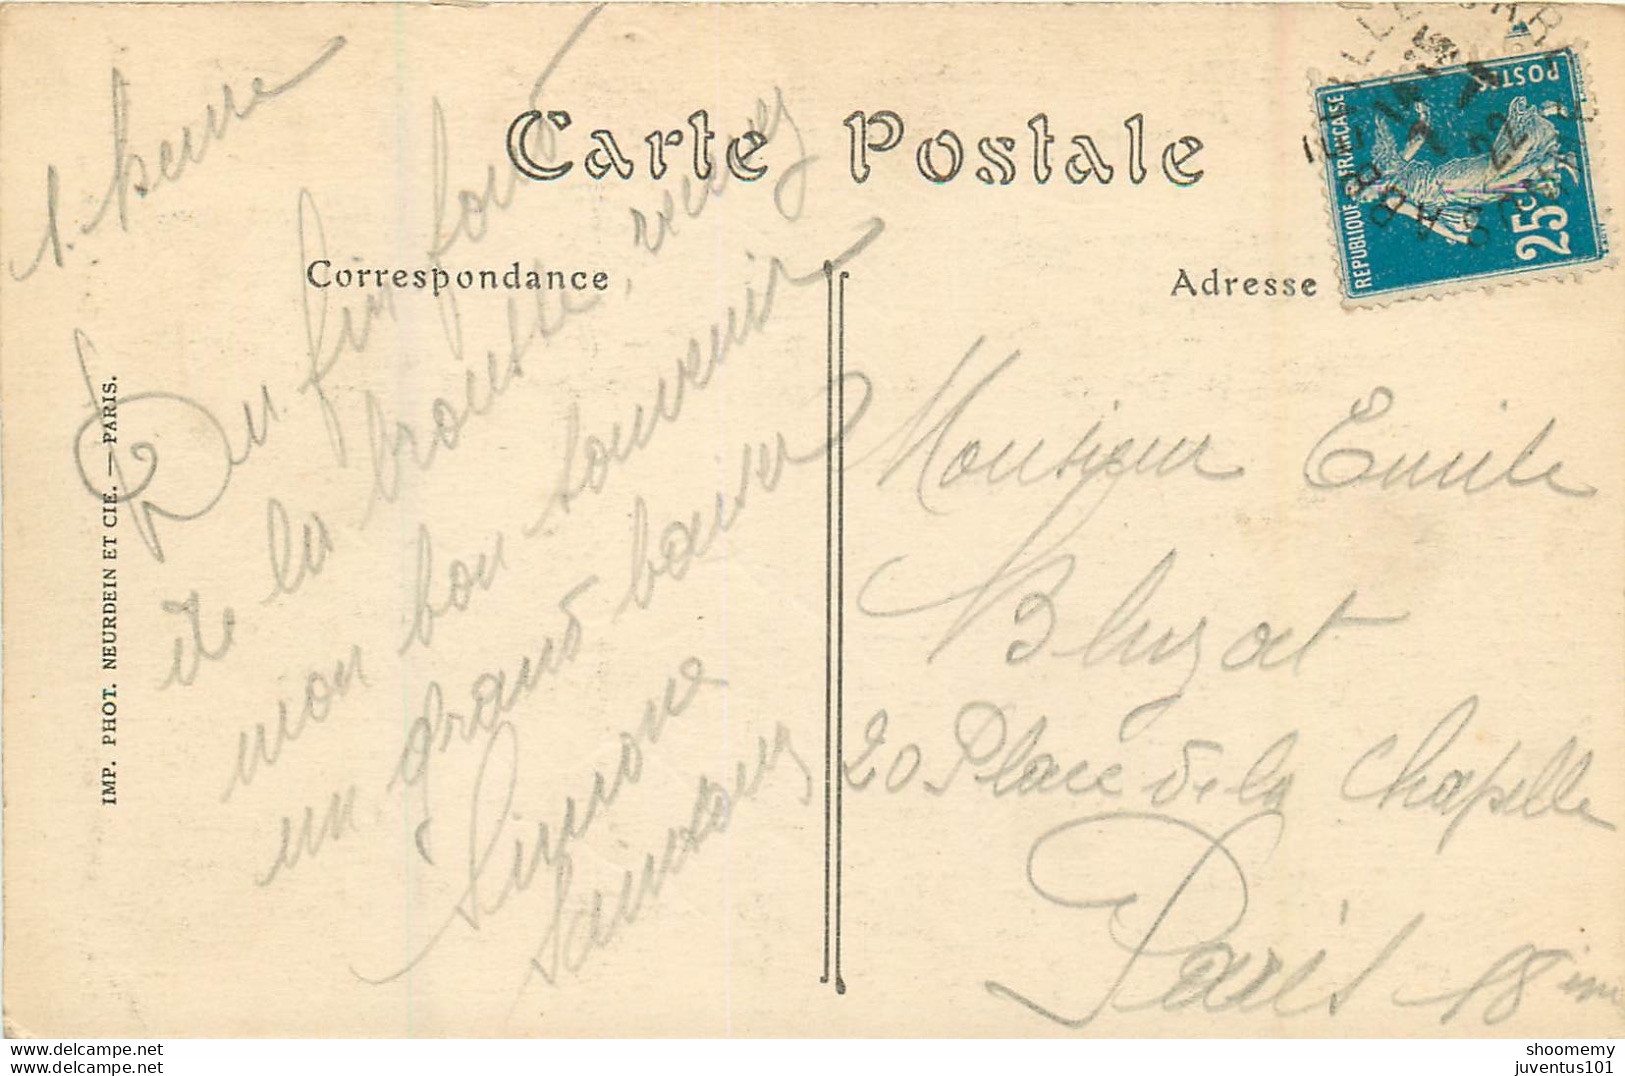 Carte Postale
Correspondance
Adresse
Du fin fond
de la brousse, recevez
mon bon souvenir
un grand baiser
Simone
Monsieur Emile
Bluzat
20 Place de la Chapelle
Paris 18 ème
REPUBLIQUE FRANCAISE
POSTES
25c
22
IMP. PHOT. NEURDEIN ET CIE. — PARIS.
http://www.delcampe.net
http://www.delcampe.net
shoomemy
juventus101